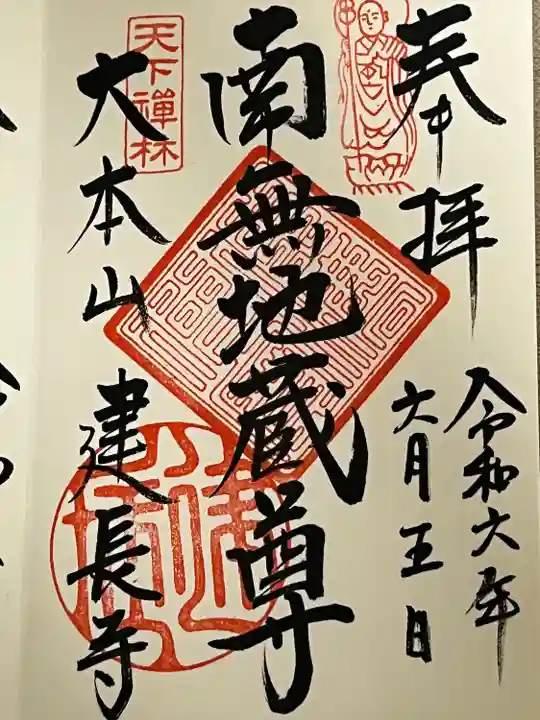 奉拝
令和六年
六月五日
南無地蔵尊
天下禅林
大本山建長寺